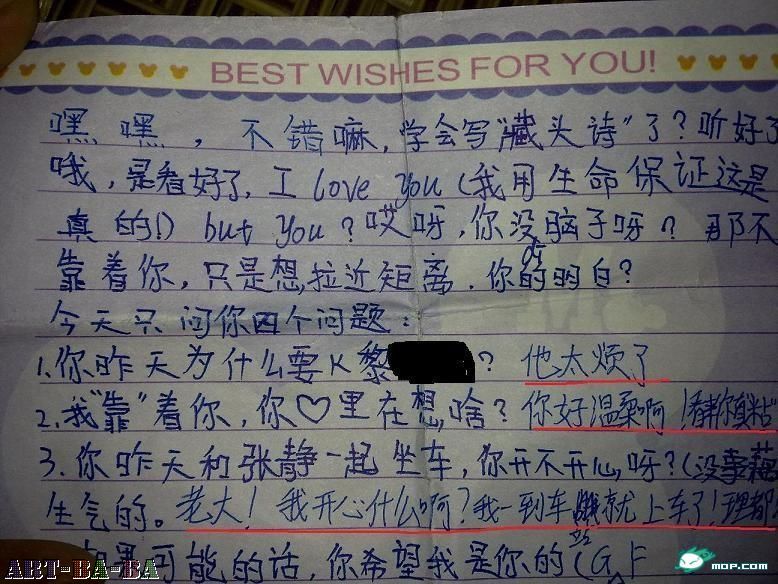 BEST WISHES FOR YOU!
嘿嘿，不错嘛，学会写"藏头诗"了？听好了
哦，是看好了，I love you（我用生命保证这是
真的！）but you？哎呀，你没脑子呀？那不
靠着你，只是想拉近距离．你的明白？
今天只问你四个问题：
1.你昨天为什么要K黎？他太烦了
2.我"靠"着你，你♡里在想啥？你好温柔啊！看你真
3.你昨天和张静一起坐车，你开不开心呀？（没
生气的。老大！我开心什么啊？我一到车就上车了！理都
可能的话，你希望我是你的（G F
ART-BA-BA
MOP.COM